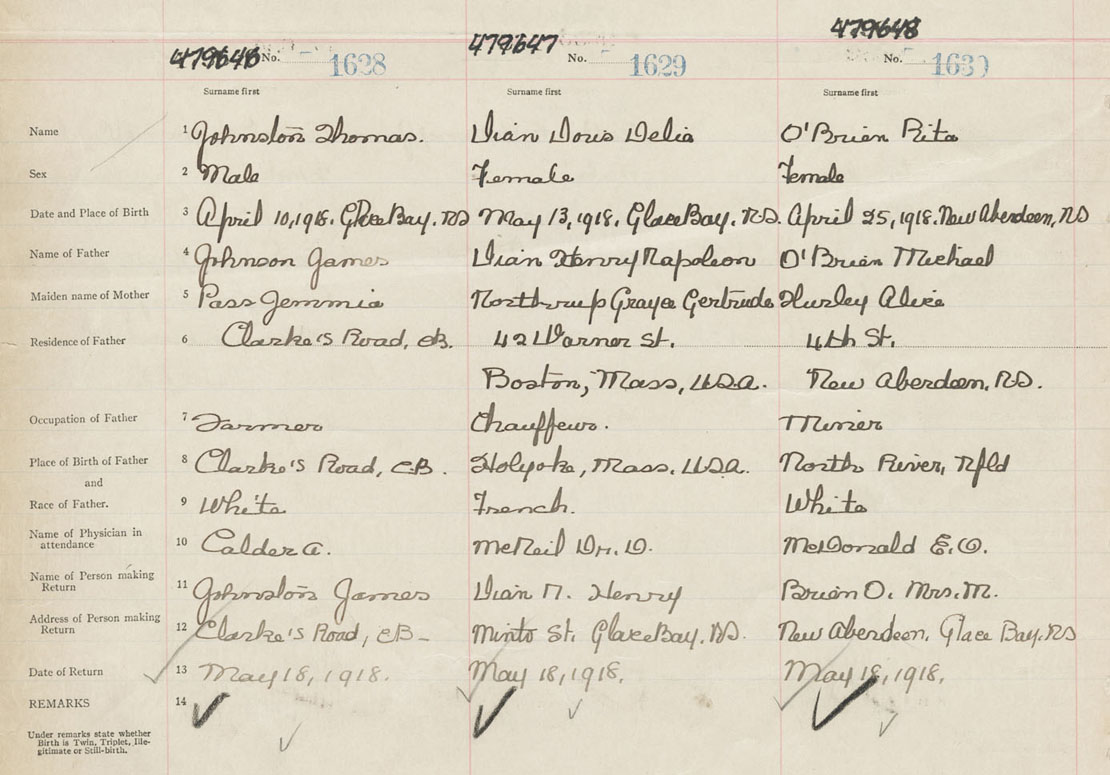 479646 479647 479648
No. 1628 No. 1629 No. 1630
Surname first Surname first Surname first
Name 1 Johnston Thomas. Vian Doris Delia O'Brien Rita
Sex 2 Male Female Female
Date and Place of Birth 3 April 10, 1918. Glace Bay. NS May 13, 1918. Glace Bay. N.S. April 25, 1918. New Aberdeen, NS
Name of Father 4 Johnson James Vian Henry Napoleon O'Brien Michael
Maiden name of Mother 5 Pass Jemmia Northrup Grayce Gertrude Hurley Alice
Residence of Father 6 Clarke's Road, CB. 42 Warner St. 4th St.
Boston, Mass, U.S.A. New Aberdeen, N.S.
Occupation of Father 7 Farmer Chauffeur. Miner
Place of Birth of Father 8 Clarke's Road, C.B. Holyoke, Mass. U.S.A. North River, Nfld
and
Race of Father. 9 White French. White
Name of Physician in
attendance 10 Calder A. McNeil Dr. D. McDonald E.O.
Name of Person making
Return 11 Johnston James Vian N. Henry Brien O. Mrs. M.
Address of Person making
Return 12 Clarke's Road, CB- Minto St. Glace Bay. N.S. New Aberdeen, Glace Bay. NS
Date of Return 13 May 18, 1918. May 18, 1918. May 18, 1918.
REMARKS 14
Under remarks state whether
Birth is Twin, Triplet, Ille-
gitimate or Still-birth.